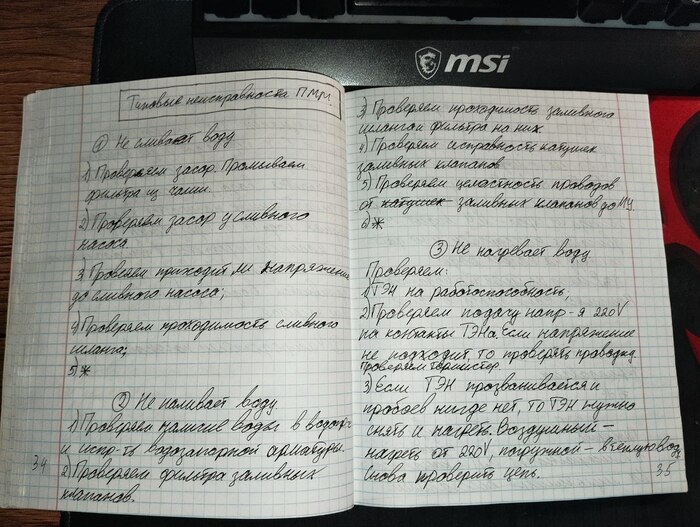 msi
Типовые неисправности ПММ
① Не сливает воду
1) Проверяем засор. Промываем
фильтра из чаши.
2) Проверяем засор у сливного
насоса
3) Проверяем приходит ли напряжение
до сливного насоса;
4) Проверяем проходимость сливного
шланга;
5) *
② Не наливает воду
1) Проверяем наличие воды в водопр-
и испр-ть водозапорной арматуры.
2) Проверяем фильтра заливных
клапанов.
34
3) Проверяем проходимость заливного
шланга и фильтра на них
4) Проверяем исправность катушек
заливных клапанов
5) Проверяем целастность проводов
от катушек заливных клапанов до МУ.
6) *
③ Не нагревает воду
Проверяем:
1) ТЭН на работоспособность,
2) Проверяем подачу напр-я 220V
на контакты ТЭНа. Если напряжение
не подходит, то проверять проводку
Проверяем термистер.
3) Если ТЭН прозванивается и
пробоев нигде нет, то ТЭН нужно
снять и нагреть. Воздушный –
нагреть от 220V, погружной – в теплую воду
Снова проверить цепь.
35